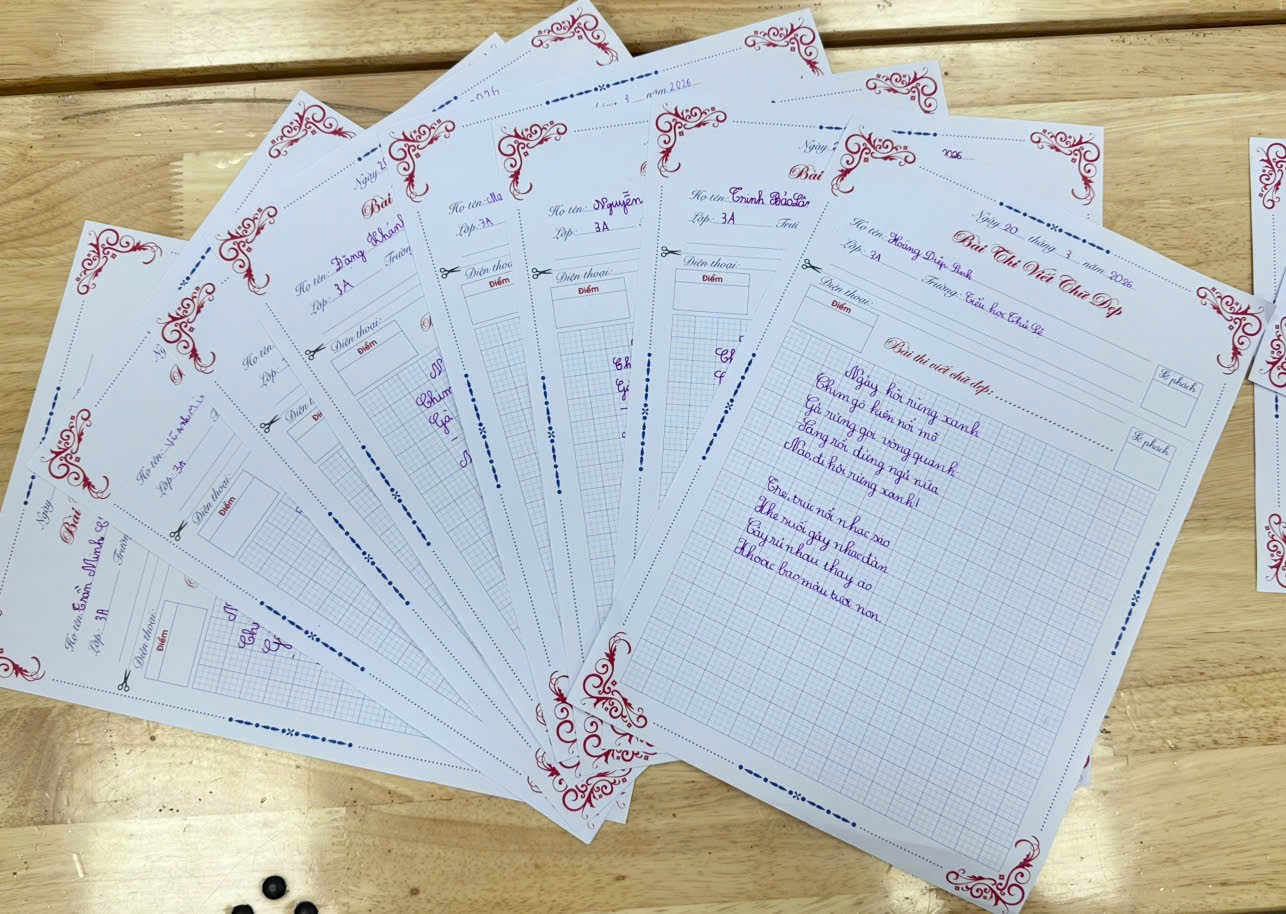 Ngày 20 tháng 3 năm 2026
Bài Thi Viết Chữ Đẹp
Họ tên: Hoàng Diệp Linh
Lớp: 3A Trường: Tiểu học Thủ Lệ
Điện thoại:
Điểm
Số phách
Bài thi viết chữ đẹp:
Số phách
Ngày hội rừng xanh
Chim gõ kiến nổi mõ
Gà rừng gọi vòng quanh
Sáng rồi, đừng ngủ nữa
Nào, đi hội rừng xanh!
Tre, trúc nổi nhạc sáo
Khe suối gảy nhạc đàn
Cây rủ nhau thay áo
Khoác bao màu tươi non.
2026
Ngày 2
Bài
Họ tên: Trịnh Bảo
Lớp: 3A Trườ
Điện thoại:
Điểm
Ch
3 năm 2026
Họ tên: Nguyễn
Lớp: 3A
Điện thoại:
Điểm
Ch
G
Họ tên:
Lớp: 3A
Điện tho
Điểm
Ngày 2
Bài
Họ tên: Đặng Khan
Lớp: 3A Trườn
Điện thoại:
Điểm
N
Chim
Gà
N
2026
Họ tên:
Lớp:
Điện t
Đi
Họ tên: Vũ
Lớp: 3A
Điện thoại:
Điểm
Ngày
Bài
Họ tên: Trần Minh
Lớp: 3A Trườn
Điện thoại:
Điểm
N
Chi
Gà